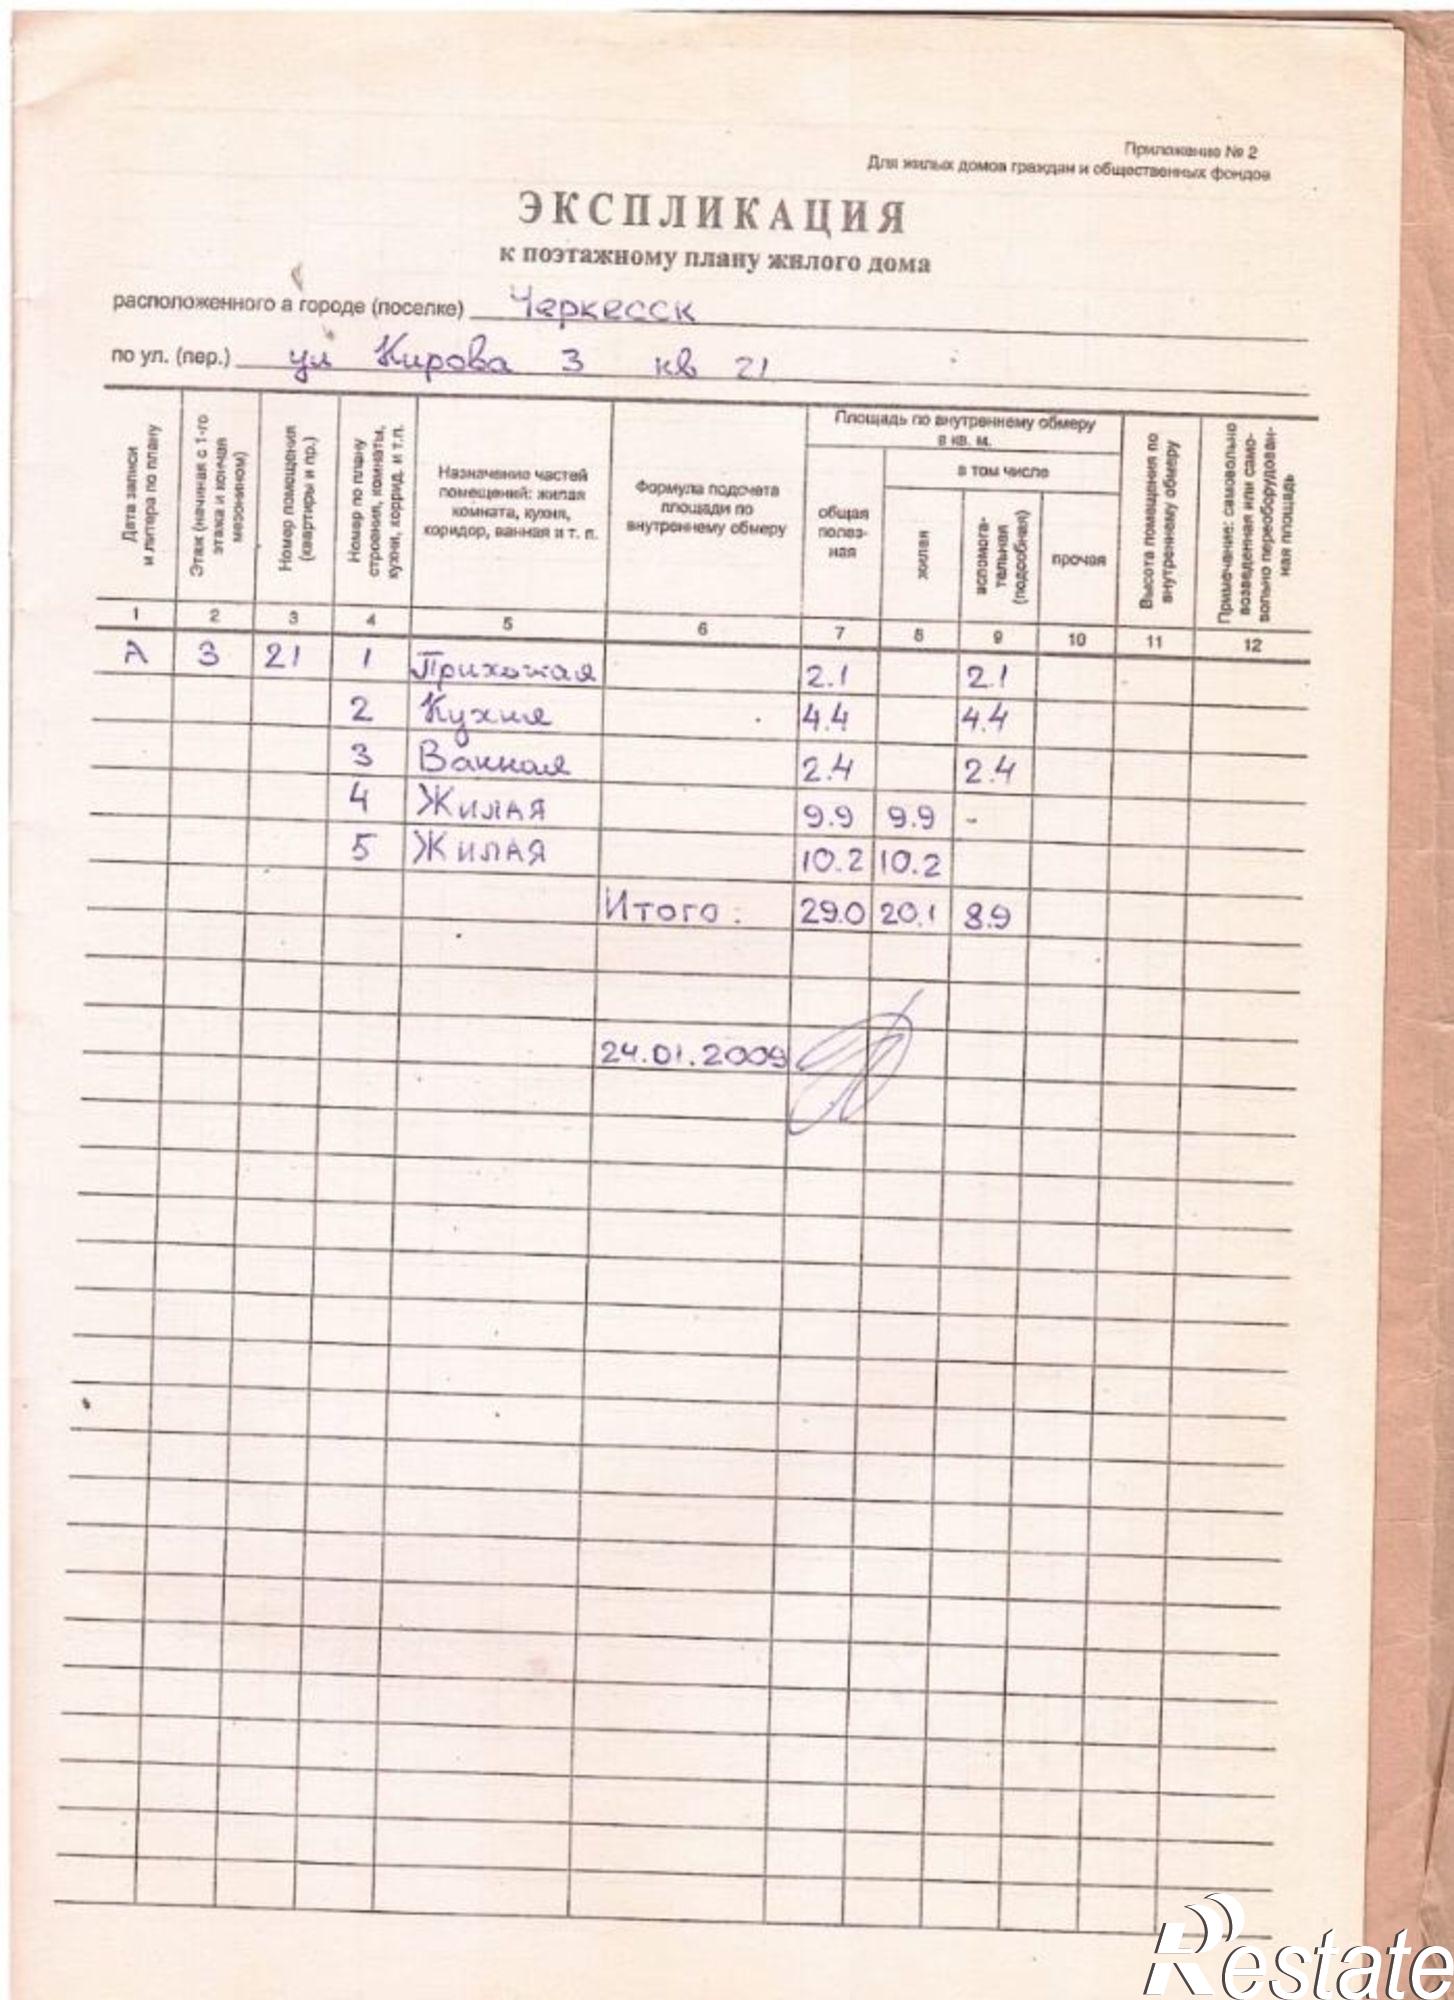 Приложение № 2
Для жилых домов граждан и общественных фондов
ЭКСПЛИКАЦИЯ
к поэтажному плану жилого дома
расположенного а городе (поселке) Черкесск
по ул. (пер.) ул Кирова 3 кв 21
Дата записи и литера по плану
Этаж (начиная с 1-го этажа и кончая мезонином)
Номер помещения (квартиры и пр.)
Номер по плану строения, комнаты, кухни, коррид. и т.п.
Назначение частей
помещений: жилая
комната, кухня,
коридор, ванная и т. п.
Формула подсчета
площади по
внутреннему обмеру
Площадь по внутреннему обмеру
в кв. м.
в том числе
общая
полез-
ная
жилая
вспомога-
тельная
(подсобная)
прочая
Высота помещения по внутреннему обмеру
Примечание: самовольно
возведенная или само-
вольно переоборудован-
ная площадь
1 2 3 4 5 6 7 8 9 10 11 12
А 3 21 1 Прихожая 2.1 2.1
2 Кухня 4.4 4.4
3 Ванная 2.4 2.4
4 Жилая 9.9 9.9 -
5 Жилая 10.2 10.2
Итого: 29.0 20.1 8.9
24.01.2009
Restate